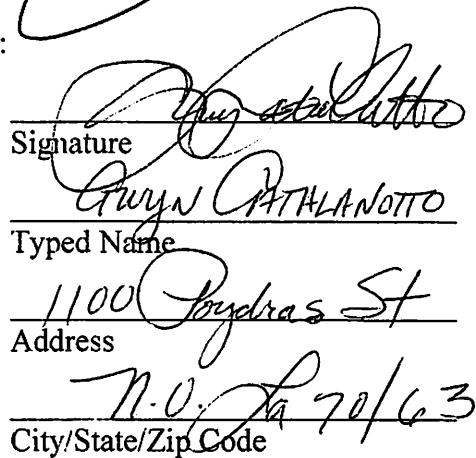 :
Signature
Gwyn CATALANOTTO
Typed Name
1100 Poydras St
Address
N.O. La 70163
City/State/Zip Code